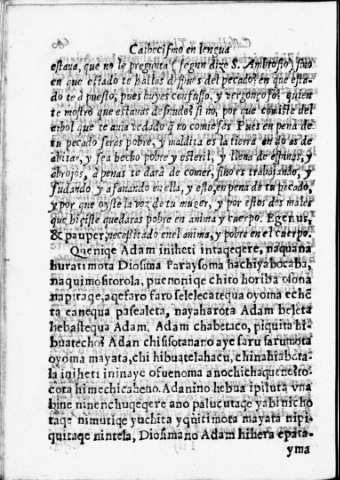 Cathecismo en lengua
estava, que no le pregunta (segun dize S. Ambrosio) sino
en que estado te hallas despues del pecado? en que esta-
do te à puesto, pues huyes confuso, y vergonçoso? quien
te mostro que estavas desnudo? si no, por que comiste del
arbol que te avia vedado q̃ no comiesses Pues en pena de
tu pecado seras pobre, y maldita es la tierra en do as de
abitar, y sea hecho pobre y esteril, y llena de espinas, y
abrojos, à penas te darà de comer, sino es trabajando, y
sudando, y afanando en ella, y esto, en pena de tu pecado,
y por que oyste la voz de tu muger, y por estos dos males
que hiziste quedaras pobre en anima y cuerpo. Egenus,
& pauper, necesitado en el anima, y pobre en el cuerpo.
Quenique Adam iniheti intaqeqere, naquana
hurati mota Diosima Paraysoma hachiyabocaba,
naquimositorola, puenonique chito horiba olona
napitaqe, aqefaro faro selelecatequa oyoma echẽ
ta eanequa pasealeta, nayaharota Adam beleta
hebastequa Adam, Adam chabetaco, piquita bi-
huatecho? Adan chisisotanaro aye saru sarumota
oyoma mayata, chi hibuatelahacu, chinahiabeta-
la iqiheti ininaye ofuenoma anochichaquenesto-
cota himechicaheno. Adanino hebua ipilutà vna
bine ninenchuqeqere ano palucutaqe yabinicho
taqe nimutiqe yuchita yquitimota mayata nipi
quitaqe nintela, Diosimano Adam hihera epata-
yma